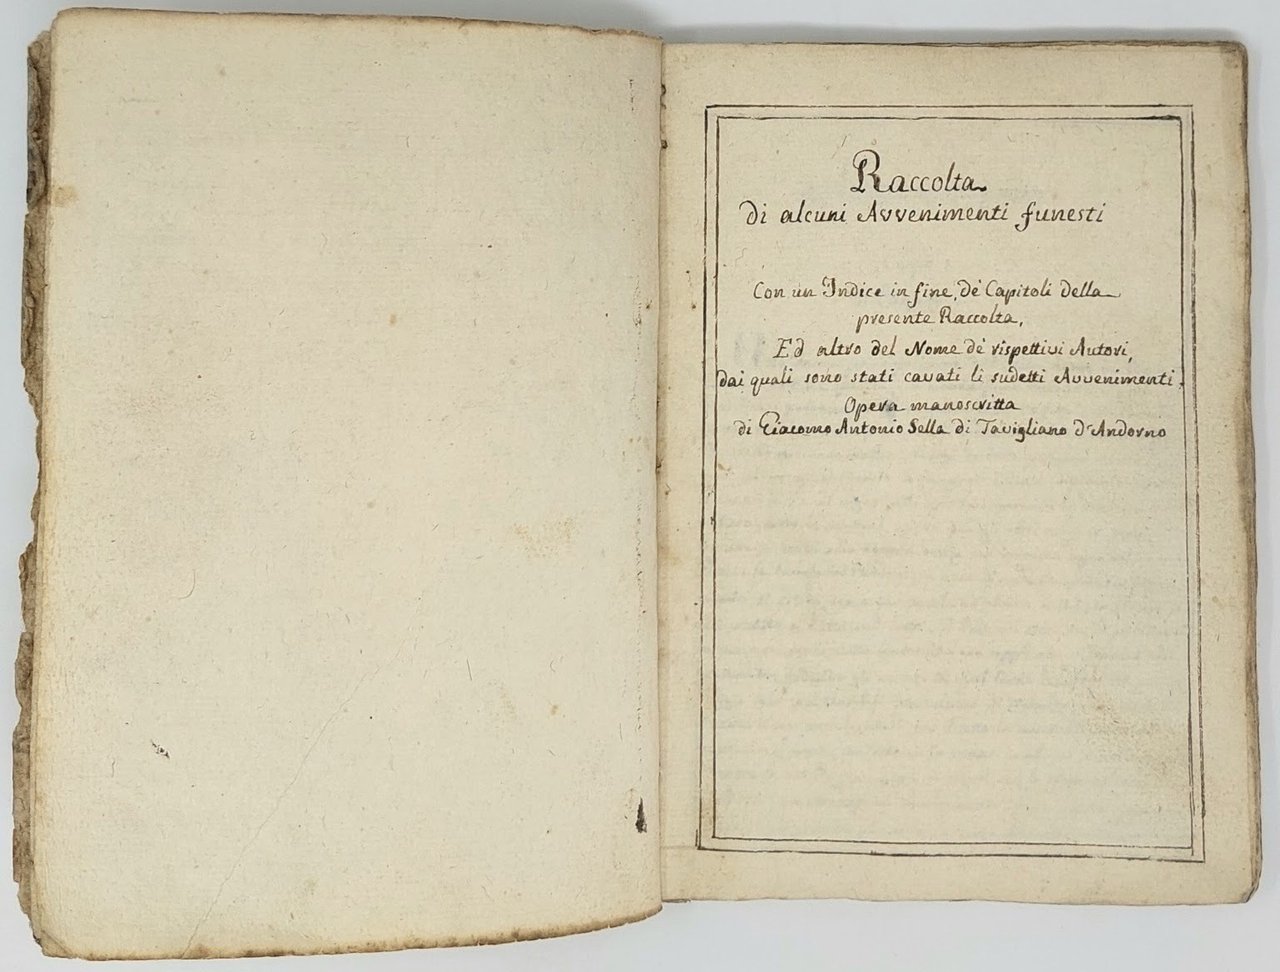 Raccolta
di alcuni Avvenimenti funesti
Con un Indice in fine, de' Capitoli della
presente Raccolta,
Ed altro del Nome de' rispettivi Autori,
dai quali sono stati cavati li sudetti Avvenimenti.
Opera manoscritta
di Giacomo Antonio Sella di Tavigliano d'Andorno